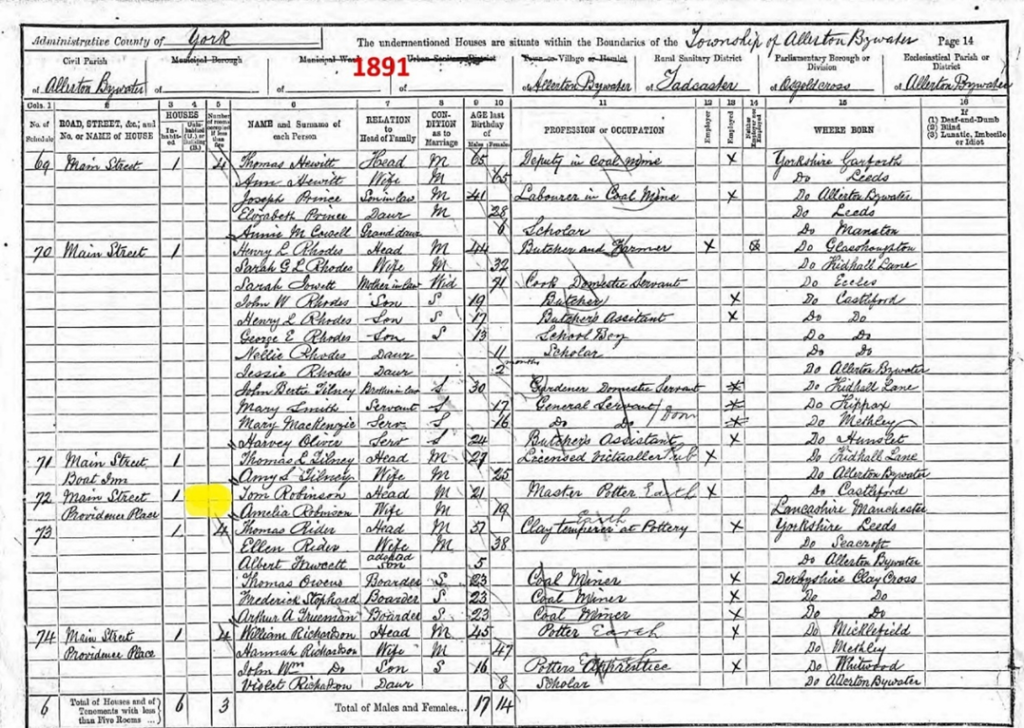 Administrative County of York The undermentioned Houses are situate within the Boundaries of the Township of Allerton Bywater Page 14
1891
Civil Parish Municipal Borough Municipal Ward Urban Sanitary District Town or Village or Hamlet Rural Sanitary District Parliamentary Borough or Division Ecclesiastical Parish or District
of Allerton Bywater of of of of Allerton Bywater of Tadcaster of Osgoldcross of Allerton Bywater
Cols. 1 2 3 4 5 6 7 8 9 10 11 12 13 14 15 16
No. of Schedule ROAD, STREET, &c., and No. or NAME of HOUSE HOUSES Inhabited Uninhabited (U.) or Building (B.) Number of rooms occupied if less than five NAME and Surname of each Person RELATION to Head of Family CONDITION as to Marriage AGE last Birthday of Males Females PROFESSION or OCCUPATION Employer Employed Neither Employer nor Employed WHERE BORN If (1) Deaf-and-Dumb (2) Blind (3) Lunatic, Imbecile or Idiot
69 Main Street 1 4 Thomas Hewitt Head M 65 Deputy in Coal Mine X Yorkshire Garforth
Ann Hewitt Wife M 65 Do Leeds
Joseph Prince Son in law M 41 Labourer in Coal Mine X Do Allerton Bywater
Elizabeth Prince Daur M 28 Do Leeds
Annie M Cowell Grand daur 6 Scholar Do Manston
70 Main Street 1 Henry L Rhodes Head M 44 Butcher and Farmer X Do Glasshoughton
Sarah G L Rhodes Wife M 32 Do Kidhall Lane
Sarah Jowett Mother in law Wid 71 Cook Domestic Servant Do Eccles
John W Rhodes Son S 19 Butcher X Do Castleford
Henry L Rhodes Son S 17 Butcher's Assitant X Do Do
George E Rhodes Son S 13 School Boy Do Do
Nellie Rhodes Daur 11 Scholar Do Do
Jessie Rhodes Daur 2 months Do Allerton Bywater
John Bertie Tilney Brother in law S 30 Gardener Domestic Servant X Do Kidhall Lane
Mary Smith Servant S 17 General Servant / Dom X Do Kippax
Mary Mackenzie Serv S 16 Do Do X Do Methley
Harvey Oliver Serv S 24 Butcher's Assistant X Do Hunslet
71 Main Street 1 Thomas L Tilney Head M 27 Licensed Victualler Pub X Do Kidhall Lane
Boat Inn Amy S Tilney Wife M 25 Do Allerton Bywater
72 Main Street 1 Tom Robinson Head M 21 Master Potter Earth X Do Castleford
Providence Place Amelia Robinson Wife M 19 Lancashire Manchester
73 1 4 Thomas Rider Head M 37 Clay temperer at Pottery Earth X Yorkshire Leeds
Ellen Rider Wife M 38 Do Seacroft
Albert Fawcett adopted Son 5 Do Allerton Bywater
Thomas Owens Boarder S 23 Coal Miner X Derbyshire Clay Cross
Frederick Stophard Boarder S 23 Coal Miner X Do Do
Arthur A Trueman Boarder S 23 Coal Miner X Do Do
74 Main Street 1 4 William Richardson Head M 45 Potter Earth X Do Micklefield
Providence Place Hannah Richardson Wife M 47 Do Methley
John Wm Do Son S 16 Potters Apprentice X Do Whitwood
Violet Richardson Daur 8 Scholar Do Allerton Bywater
6 Total of Houses and of Tenements with less than Five Rooms ... 6 3 Total of Males and Females... 17 14